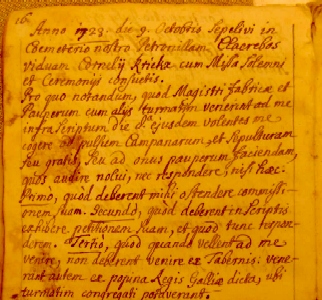 16.
Anno 1728 die 9 Octobris Sepelivi in
Coemeterio nostro Petronillam Claerebos
Viduam Cornelij Krickx cum Missa Solemni
et Ceremonijs consuetis.
Pro quo notandum, quod Magistri fabricæ et
Pauperum cum alijs turmatim venerint ad me
infra Scriptum die 8ª ejusdem volentes me
cogere ad pulsum Campanarum et Sepulturam
seu gratis, seu ad onus pauperum faciendam,
quos audire nolui, nec respondere, nisi hæc.
Primò, quòd deberent mihi ostendere commissi-
onem suam. Secundò, quòd deberent in Scriptis
exhibere petitionem suam, et quòd tunc respon-
derem. Tertio, quòd quando vellent ad me
venire, non deberent venire ex Tabernis. vene-
rant autem ex popina Regis Galliæ dicta, ubi
turmatim congregati potaverant.